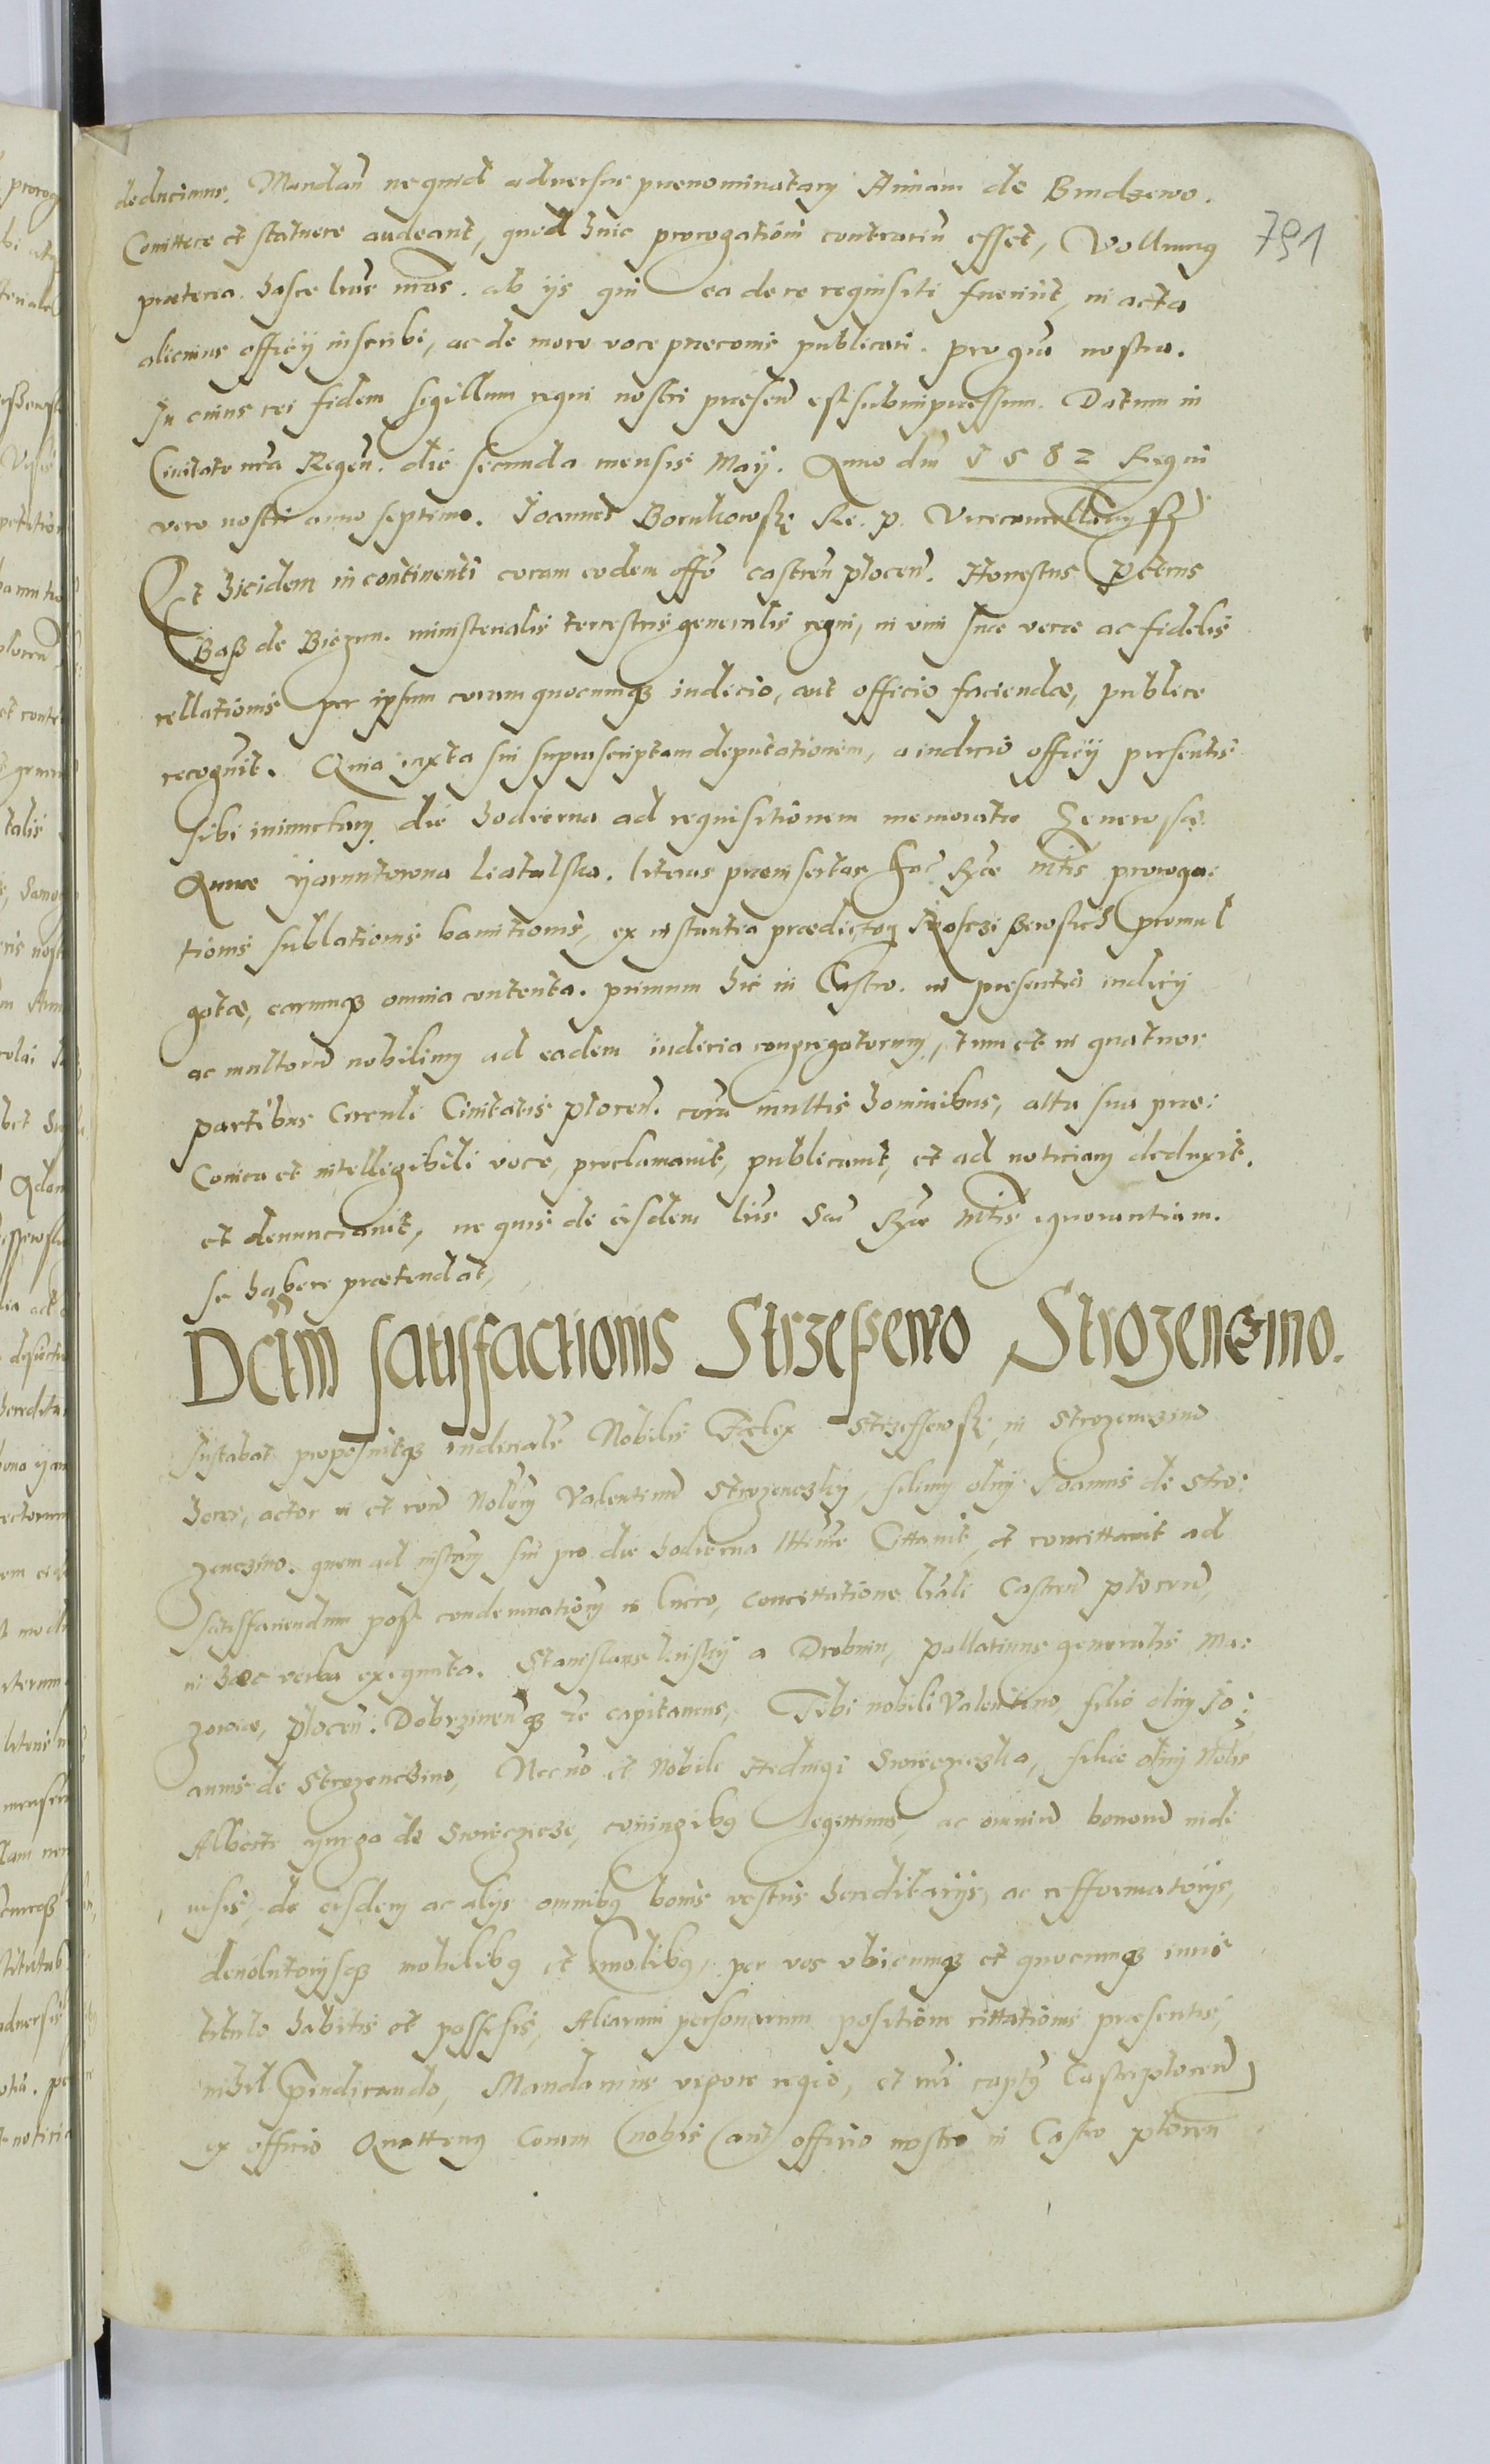 deducimus. Mandan̄ ne quid aduersus prænominatam Annam de Brudzewo.
Comittere et statuere audeant, quod huic prorogationi contrariū esset, Vollumus
791
præterea. hasce lrās nrās. ab ijs qui ea de re requisiti fuerint, in acta
alicuius officÿ inscribi, ac de more voce præconis publicari. pro grā nostra.
In cuius rei fidem sigillum regni nostri præsen̄ est subimpressum. Datum in
Ciuitate nrā Regen̄. die secunda mensis Maÿ. Anno dnī 1582 Regni
vero nostri anno septimo. Joannes Borukowsky Re. p. Vicecancellarius sst
Et hicidem in continenti coram eodem offō castren̄ plocen̄. Honestus Petrus
Baß de Biezun. ministerialis terrestris generalis regni, in vim suæ veræ ac fidelis
rellationis per ipsum coram quocumqꝫ iudicio, aut officio faciendæ, publice
recognūit. Quia iuxta sui suprascriptam deputationem, a iudicio officÿ præsentis
sibi iniunctam die hodierna ad requisitionem memoratæ Generosæ
Annæ literas præinsertas Sac̄ Rgiæ Mtis proroga:
tionis sublationis banitionis, ex instantia prædictoꝝ promul
gatæ, earumqꝫ omnia contenta. primum hic in Castro. in presentia iudicÿ
ac multorū nobilium ad eadem iudicia congregatorum, tum et in quatuor
partibus Circuli Ciuitatis plocen̄. corā multis hominibus, alta sua præ:
Conica et intellegibili voce, proclamauit, publicauit, et ad noticiam deduxit.
et denunciauit, ne quis de eisdem lrīs Sac̄ Rgiæ Mtis ignorantiam.
se habere prætendat,
Dctm̄ satisfactionis Strzeßewo Strozenczino.
Instabat proposuitqꝫ iudicialr̄ Nobilis Fœlix Strzessewsky in Strozenczino
heres, actor in et con̄ Nobīlem Valentinū Strozenczky, filium olim Joannis de Stro:
zenczino. quem ad instam̄ sui pro die hodierna Cittauit, et concittauit ad
satisfaciendum post condemnationem in lucro, concittatione lrāli Castren̄ plocen̄,
in hæc verba exequuta. Stanislaus Krisky a Drobnin, pallatinus generalis Ma:
zoviæ, plocen̄. Dobrzinen̄qꝫ capitaneus, Tibi nobili Valentino, filio olim Jo:
annis de Strozenczino, Necnō et Nobili Heduigi Swiecziczka, filiæ olim Nobīlis
Alberti de Swieczicze, coniugibꝫ legittimis, ac omniū bonorū inde
de eisdem ac alÿs omnibꝫ bonis vestris hereditarÿs, ac refformatorÿs,
deuolutorÿsqꝫ mobilibꝫ et imobīlibꝫ, per vos vbicumqꝫ et quocumqꝫ iuris
titulo habitis et possessis, Aliarum personarum positione cittationis præsentis,
nihil præiudicando, Mandamus vigore regio, et mei captus Castri plocen̄
ex officio Quattenꝫ Coram nobis aut officio nostro in Castro plocen̄